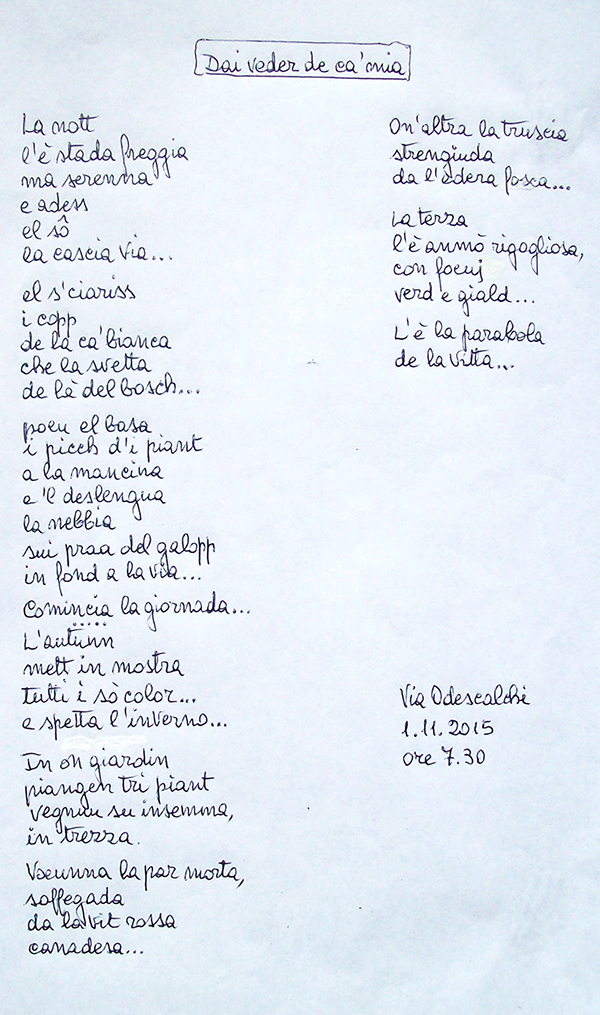 Dai veder de ca' mia
La nott
l'è stada freggia
ma serenna
e adess
el sô
la cascia via...
el s'ciariss
i copp
de la ca' bianca
che la svetta
de là del bosch...
poeu el basa
i picch d'i piant
a la mancina
e 'l deslengua
la nebbia
sui praa del galopp
in fond a la via...
Comincia la giornada...
L'autunn
mett in mostra
tutti i sò color...
e spetta l'inverno...
In on giardin
piangen tri piant
vegnuu su insemma,
in trezza.
Voeunna la par morta,
soffegada
da la vit rossa
canadesa...
On'altra la truscia
strengiuda
da l'èdera fosca...
La terza
l'è anmò rigogliosa,
con foeuj
verd e giald...
L'è la parabola
de la vitta...
Via Odescalchi
1.11.2015
ore 7.30